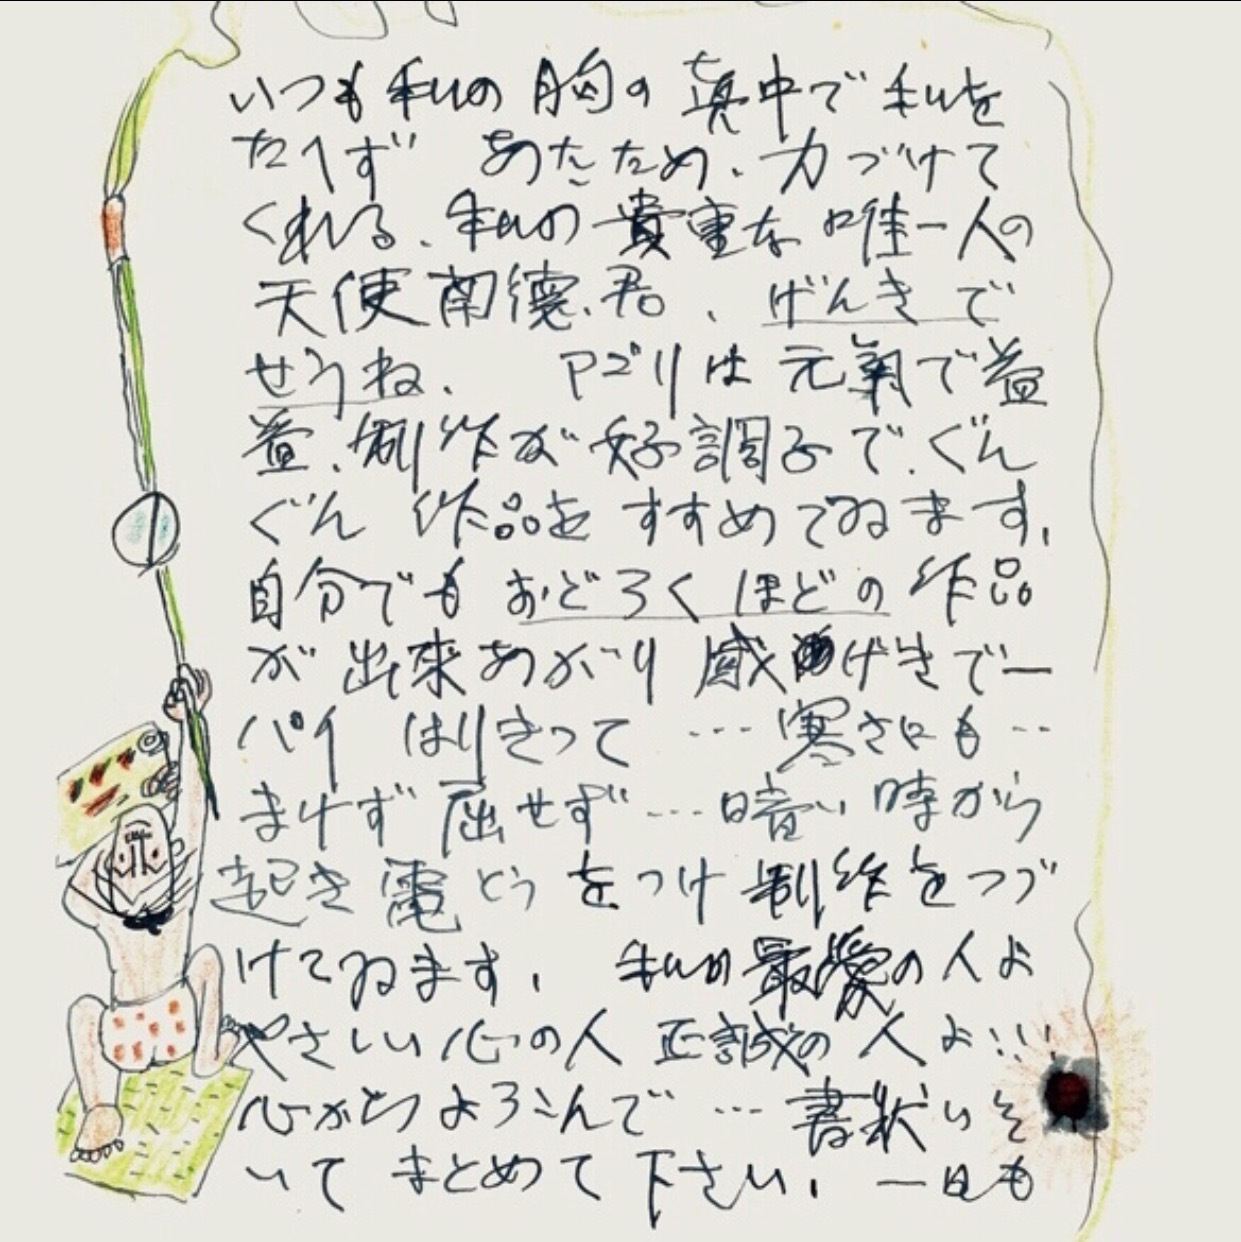 いつも私の胸の真中で私を
たへず あたため、力づけて
くれる、私の貴重な唯一人の
天使南徳君、げんきで
せうね、 アゴリは元氣で益
益、制作が好調子で、ぐん
ぐん 作品をすすめてゐます、
自分でもおどろくほどの作品
が出来あがり 感げきで一
パイ はりきって…寒さにも…
まけず屈せず…暗い時から
起き電とうをつけ制作をつづ
けてゐます、 私の最愛の人よ
やさしい心の人 正誠の人よ!!!
心からよろこんで…書状いそ
いて まとめて下さい、一日も